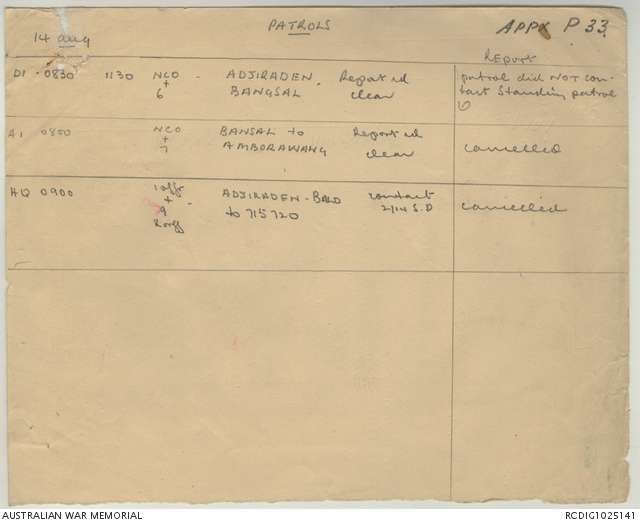 14 aug
PATROLS
APPX P 33.
Report
D1 - 0830 1130 NCO + 6 - ADJIRADEN. BANGSAL Reported clear patrol did NOT contact Standing patrol
A1 0800 NCO + 7 BANSAL to AMBORAWANG Reported clear cancelled
HQ 0900 1 offr + 9 - ADJIRADEN - BALD to 715720 contact 2/14 S.P cancelled
AUSTRALIAN WAR MEMORIAL
RCDIG1025141